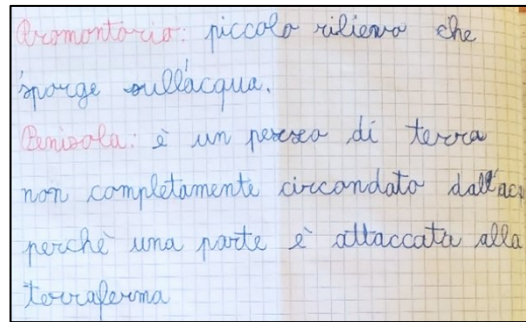 Promontorio: piccolo rilievo che
sporge sull'acqua.
Penisola: è un pezzo di terra
non completamente circondato
perchè una parte è attaccata alla
terraferma